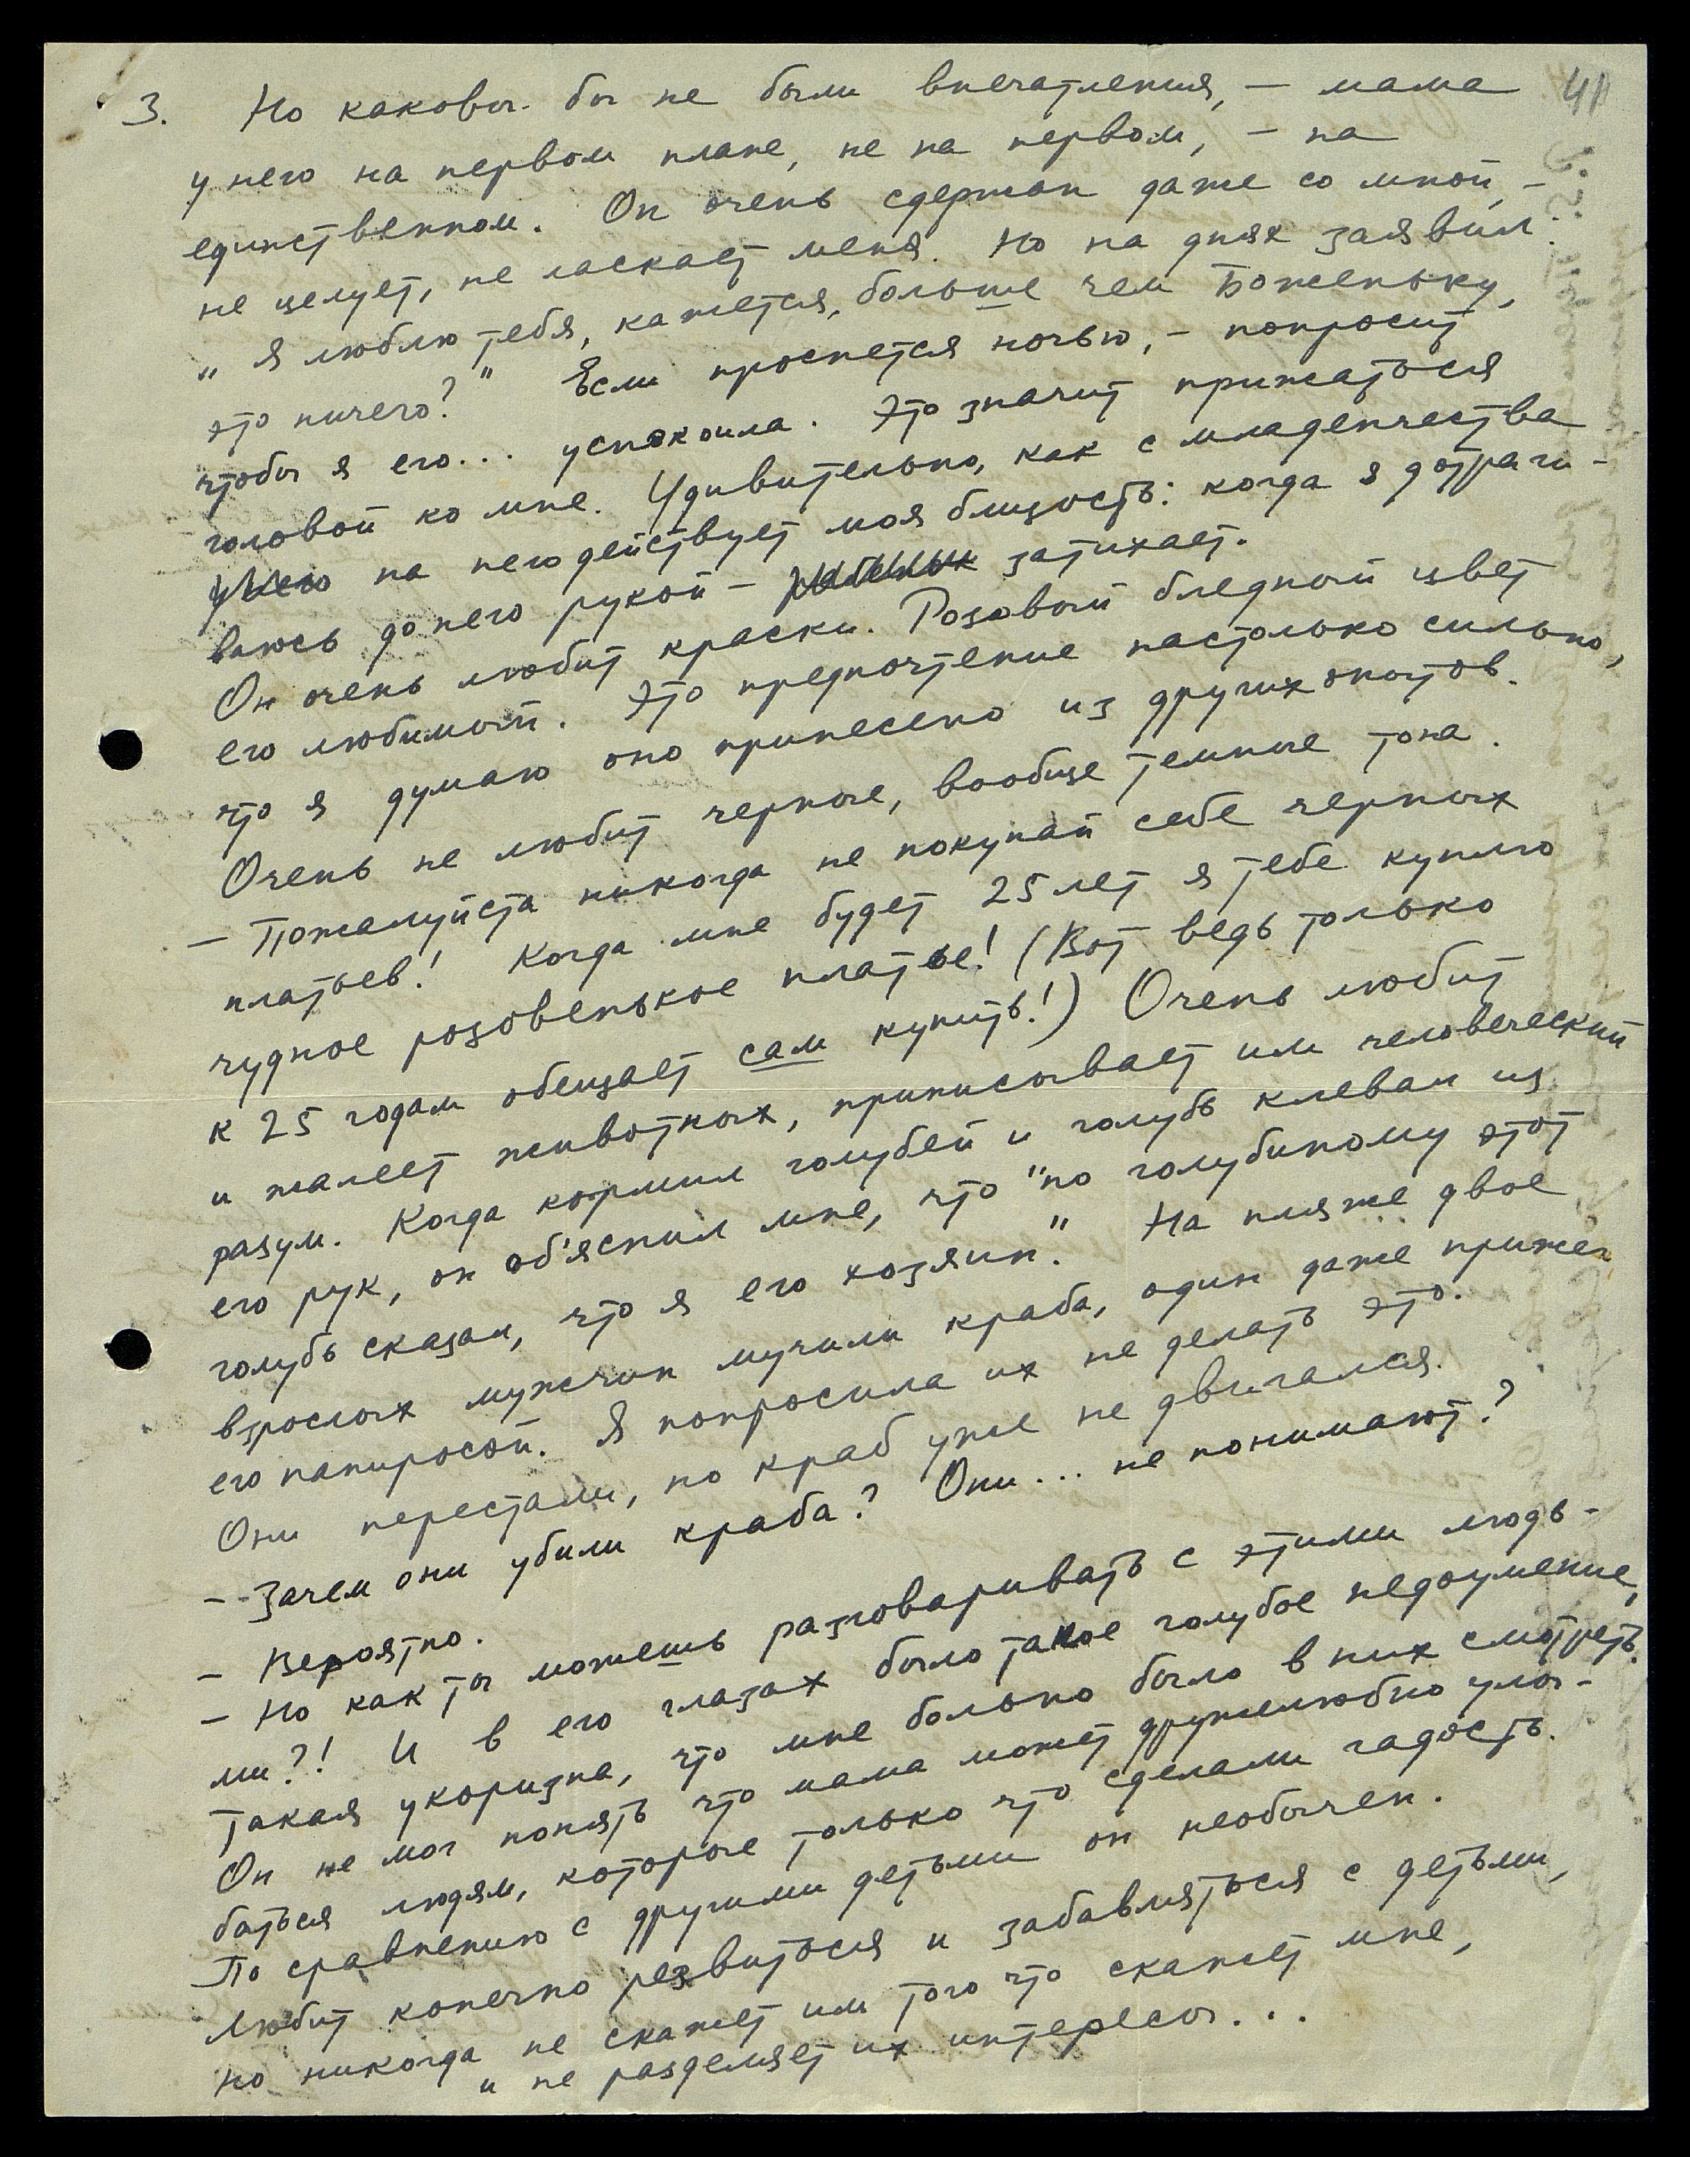 3. Но каковы бы не были впечатления, — мама 41
у него на первом плане, не на первом, — на
единственном. Он очень сдержан даже со мной, —
не целует, не ласкает меня. Но на днях заявил:
„Я люблю тебя, кажется, больше чем Боженьку,
это ничего?" Если проснется ночью, — попросит
чтобы я его... успокоила. Это значит прижаться
головой ко мне. Удивительно, как с младенчества
на него действует моя близость: когда я дотраги-
ваюсь до него рукой — затихает.
Он очень любит краски. Розовый бледный цвет
его любимый. Это предпочтение настолько сильно,
что я думаю оно принесено из других опытов.
Очень не любит черные, вообще темные тона.
— Пожалуйста никогда не покупай себе черных
платьев! Когда мне будет 25 лет я тебе куплю
чудное розовенькое платье! (Вот ведь только
к 25 годам обещает сам купить!) Очень любит
и жалеет животных, приписывает им человеческий
разум. Когда кормил голубей и голубь клевал из
его рук, он об'яснил мне, что "по голубиному этот
голубь сказал, что я его хозяин." На пляже двое
взрослых мужчин мучили краба, один даже прижег
его папиросой. Я попросила их не делать это.
Они перестали, но краб уже не двигался.
— Зачем они убили краба? Они... не понимают?
— Вероятно.
— Но как ты можешь разговаривать с этими людь-
ми?! И в его глазах было такое голубое недоумение,
такая укоризна, что мне больно было в них смотреть.
Он не мог понять что мама может дружелюбно улы-
баться людям, которые только что сделали гадость.
По сравнению с другими детьми он необычен.
Любит конечно резвиться и забавляться с детьми,
но никогда не скажет им того что скажет мне,
и не разделяет их интересы...